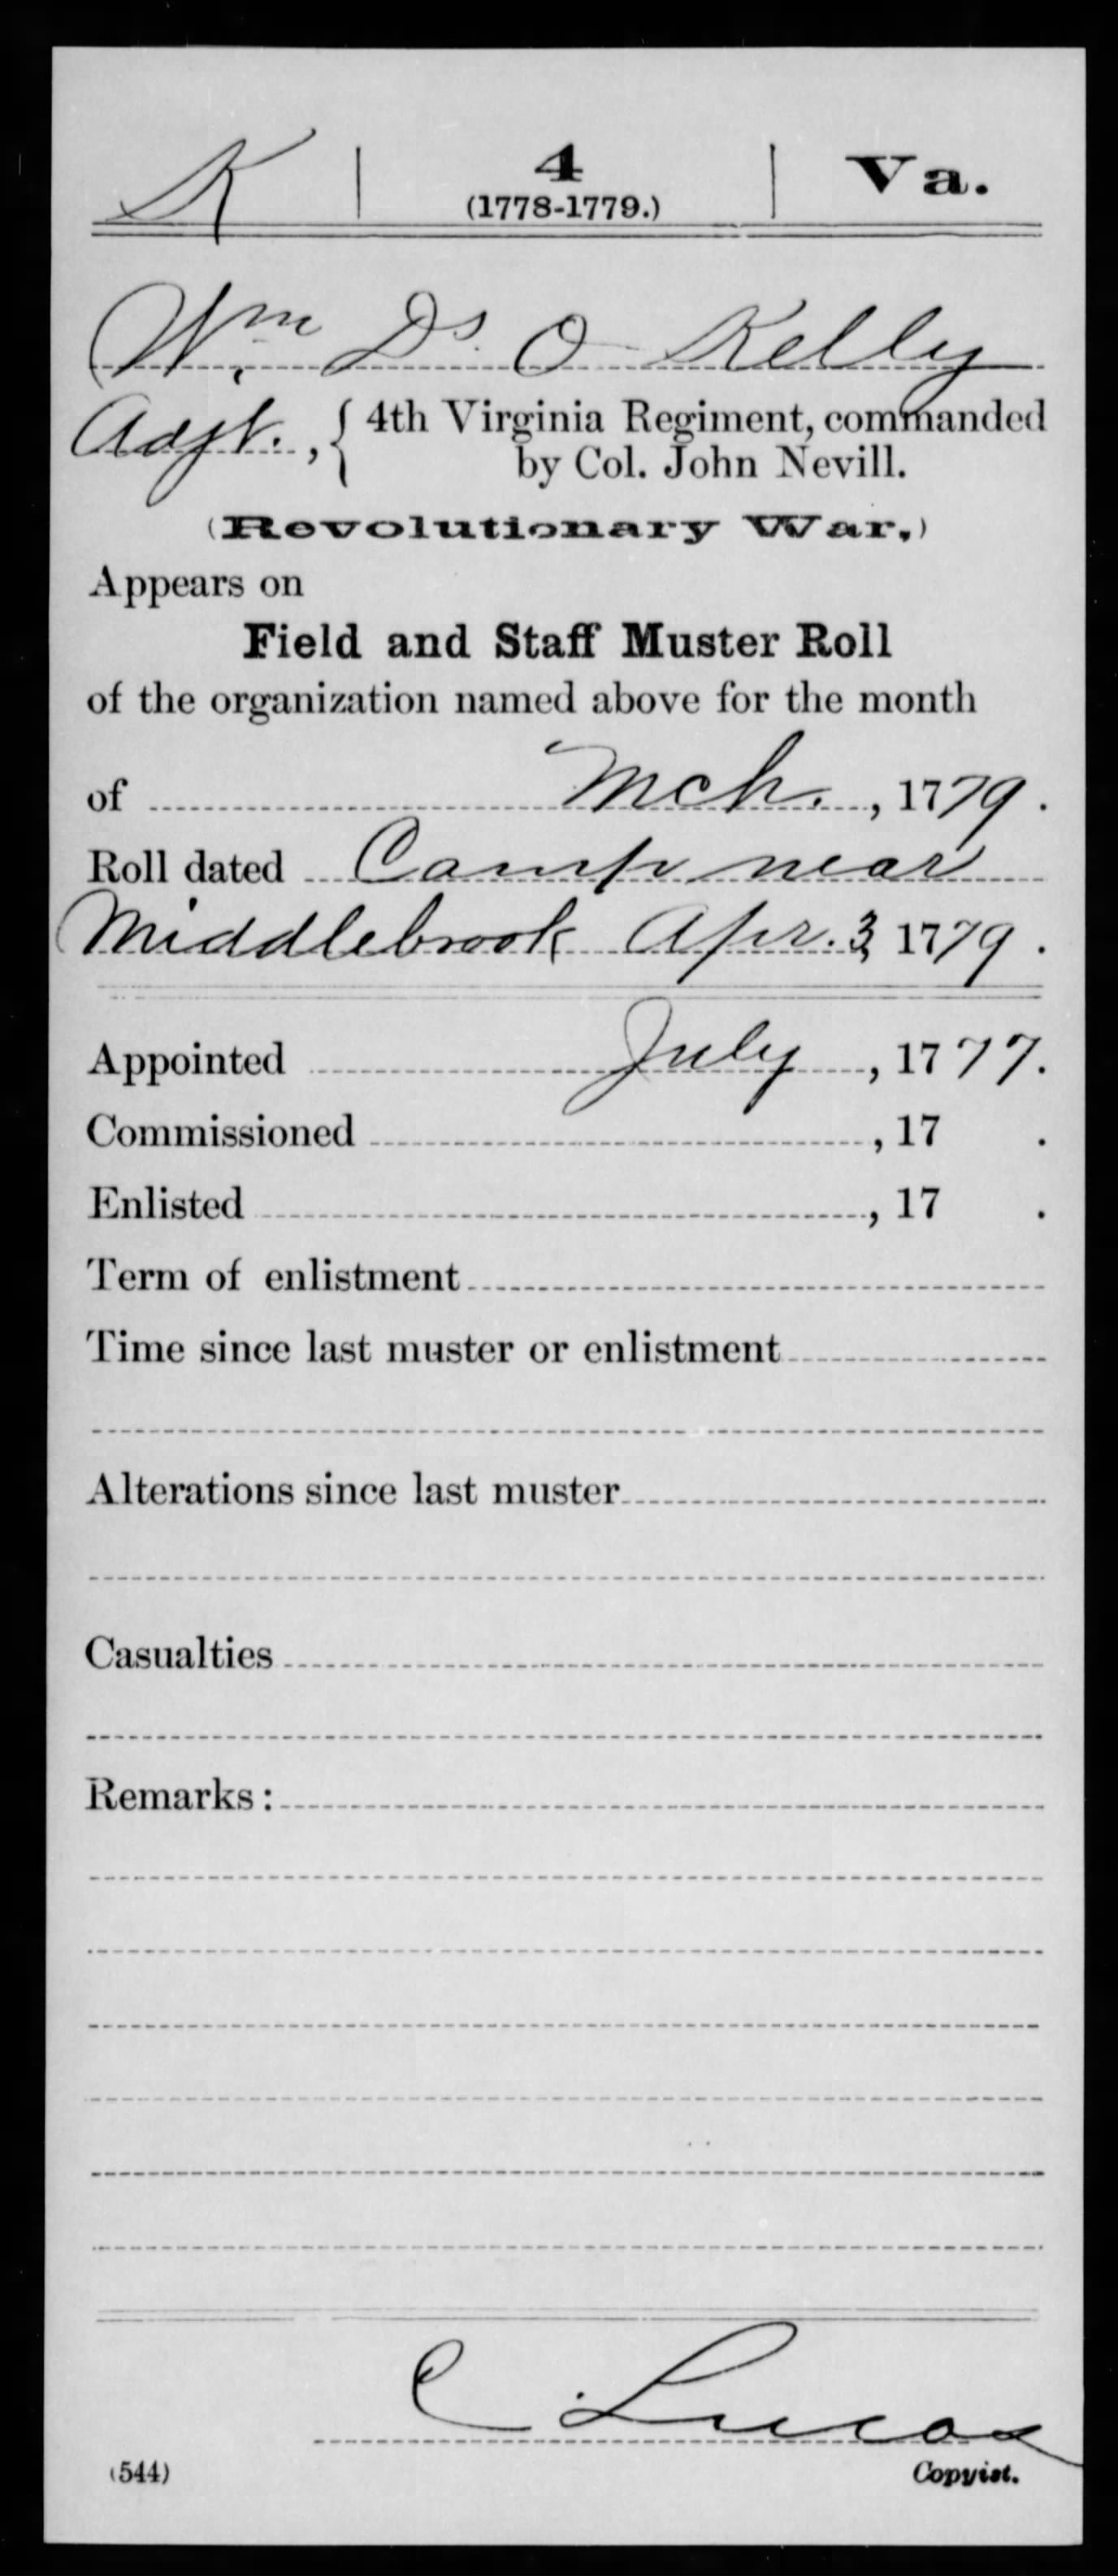 K | 4 | Va.
(1778-1779.)
Wm. Ds. O Kelly
Adjt., { 4th Virginia Regiment, commanded
by Col. John Nevill.
(Revolutionary War.)
Appears on
Field and Staff Muster Roll
of the organization named above for the month
of Mch., 1779.
Roll dated Camp near
Middlebrook Apr. 3, 1779.
Appointed July, 1777.
Commissioned , 17 .
Enlisted , 17 .
Term of enlistment
Time since last muster or enlistment
Alterations since last muster
Casualties
Remarks:
C Lucas
(544) Copyist.